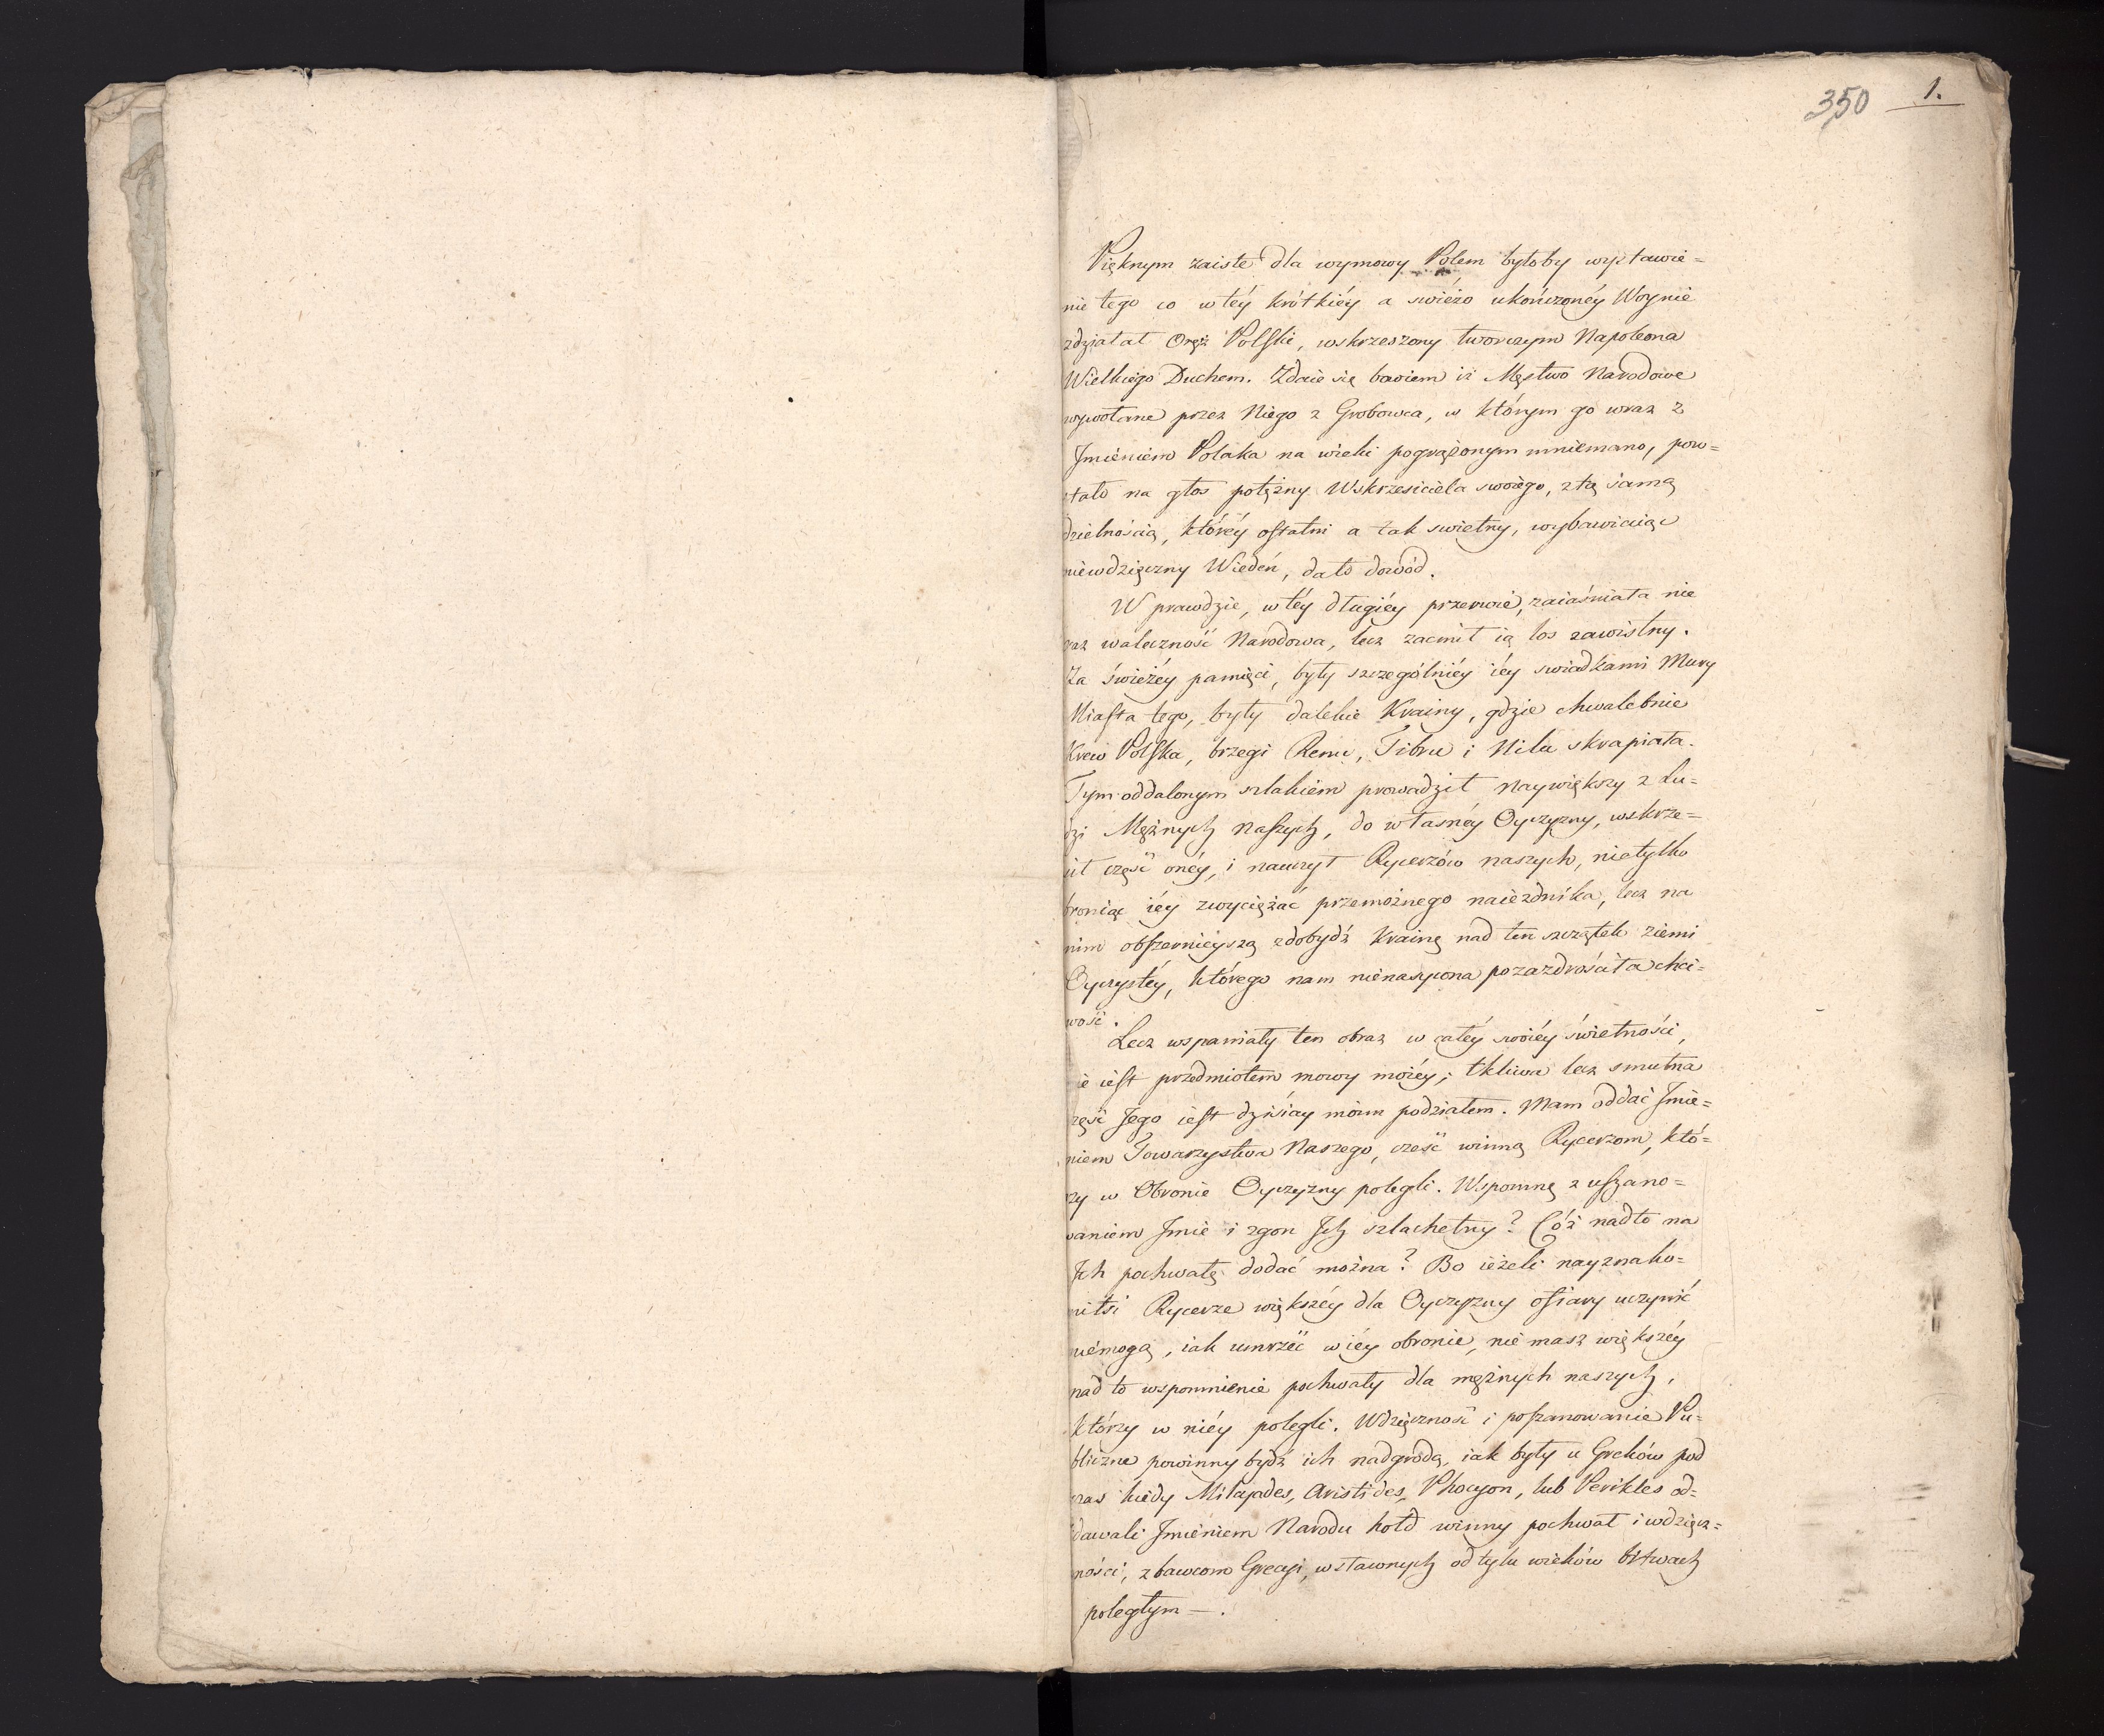 350 1.
Pięknym zaiste dla wymowy Polem byłoby wystawie=
nie tego co w téy krótkiéy a swiéżo ukończonéy Woynie
zdziałał Oręż Polski, wskrzeszony tworczym Napoleona
Wielkiego Duchem. Zdaie się bowiem iż Męstwo Narodowe
wywołane przez Niego z Grobowca, w którym go wraz z
Jmieniem Polaka na wieki pogrążonym mniemano, pow=
stało na głos potężny Wskrzesiciela swoiego, z tą samą
dzielnością, któréy ostatni a tak swietny, wybawiaiąc
niewdzięczny Wiedeń, dało dowód.
W prawdzie, w téy długiéy przerwie, zaiaśniała nie
raz waleczność Narodowa, lecz zacmił ią los zawistny.
Za świéżéy pamięci, były szczególniéy iéy swiadkami Mury
Miasta tego, były dalekie Krainy, gdzie chwalebnie
Krew Polska, brzegi Renu, Tibru i Nilu skrapiała.
Tym oddalonym szlakiem prowadził naywiększy z Lu=
dzi Mężnych naszych, do własnéy Oyczyzny, wskrze=
sił część onéy, i nauczył Rycerzów naszych, nietylko
broniąc iéy zwyciężać przemożnego naiezdnika, lecz na
nim obszernieyszą zdobydź Krainę nad ten szczątek ziemi
Oyczystéy, którego nam nienasycona pozazdrościła chci=
wość.
Lecz wspaniały ten obraz w całéy swoiéy świetności,
ie iest przedmiotem mowy moiéy; tkliwa lecz smutna
zęść Jego iest dzisiay moim podziałem. Mam oddać Jmie=
niem Towarzystwa Naszego, cześć winną Rycerzom, któ=
rzy w Obronie Oyczyzny polegli. Wspomnę z uszano=
waniem Jmie i zgon Jch szlachetny? Cóż nadto na
Jch pochwałę dodać można? Bo ieżeli nayznako=
mitsi Rycerze większéy dla Oyczyzny ofiary uczynić
niémogą, iak umrzéć w iéy obronie, nie masz większéy
nad to wspomnienie pochwały dla mężnych naszych,
którzy w niéy polegli. Wdzięczność i poszanowanie Pu=
bliczne powinny bydź ich nadgrodą, iak były u Greków pod
czas kiedy Miltyades, Aristides, Phocyon, lub Perikles od=
dawali Jmieniem Narodu hołd winny pochwał i wdzięcz=
ności, zbawcom Grecyi, w sławnych od tylu wieków bitwach
poległym —.